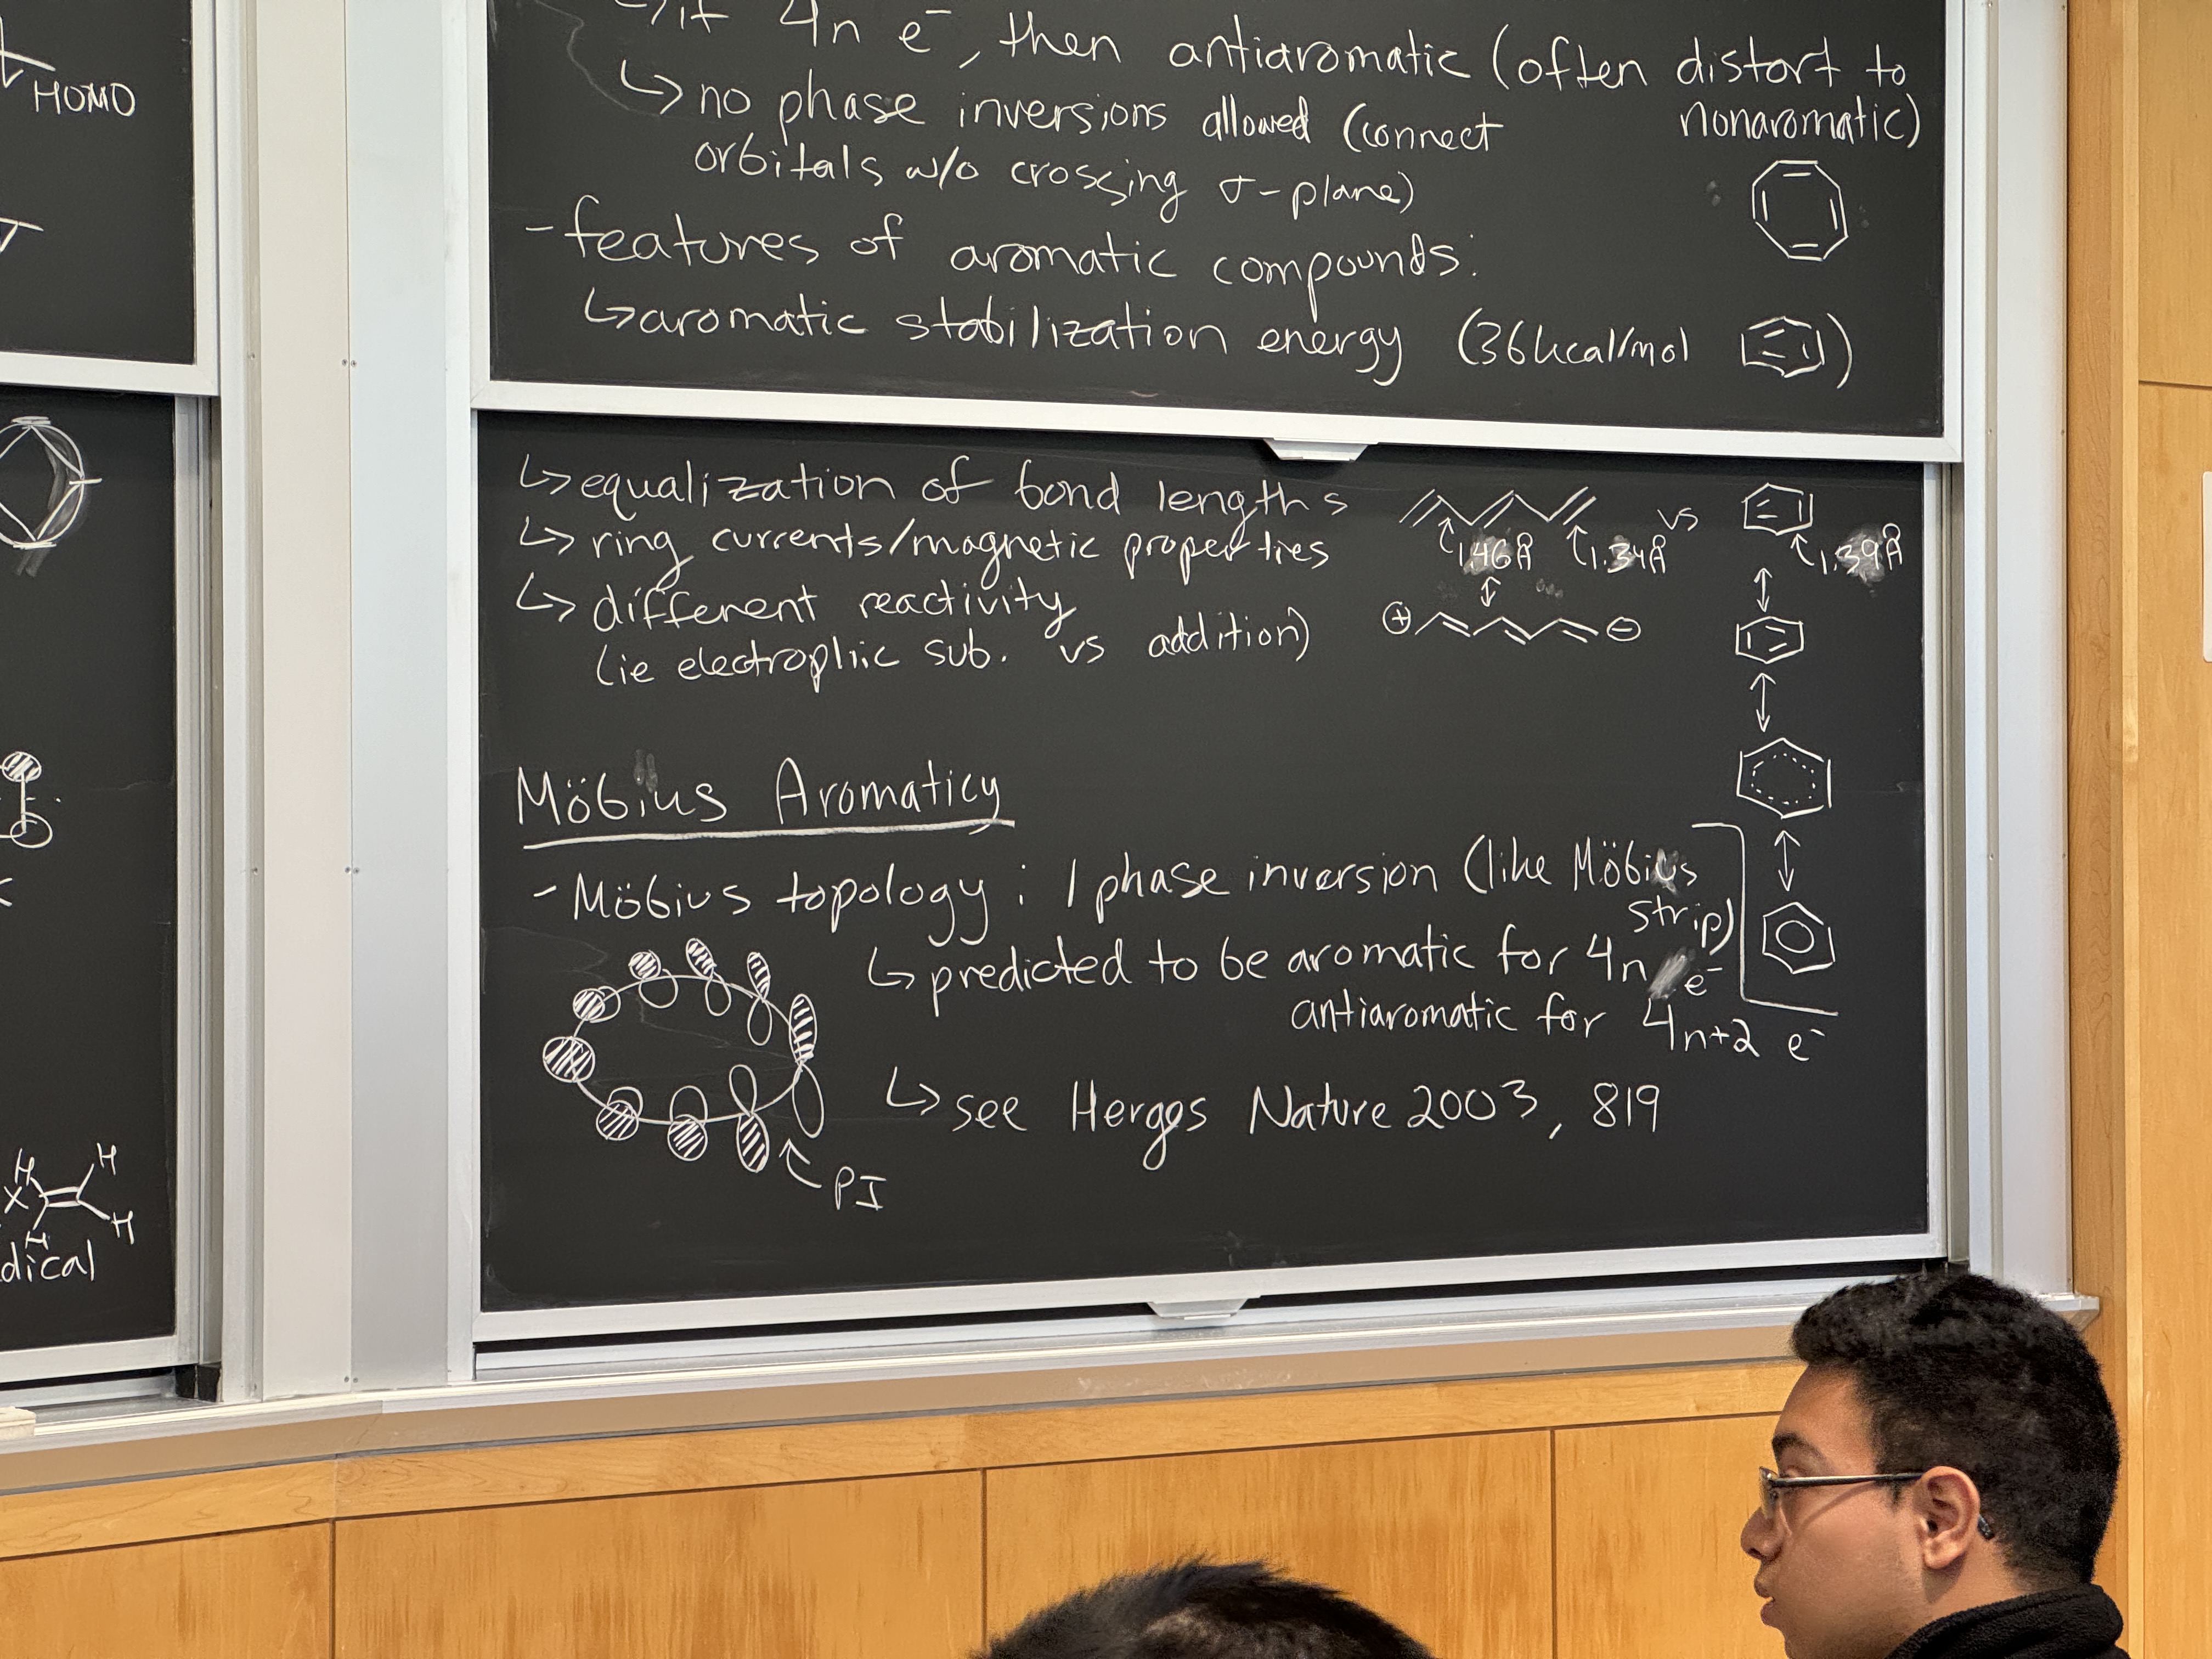 HOMO
dical
H
H
X
H
H
↳ if 4n e⁻, then antiaromatic (often distort to
nonaromatic)
↳ no phase inversions allowed (connect
orbitals w/o crossing σ-plane)
- features of aromatic compounds:
↳ aromatic stabilization energy (36 kcal/mol )
↳ equalization of bond lengths
1.46Å 1.34Å vs 1.39Å
↳ ring currents/magnetic properties
↳ different reactivity
(ie electroplic sub. vs addition)
⊕ ⊖
Möbius Aromaticy
- Möbius topology : 1 phase inversion (like Möbius
strip)
↳ predicted to be aromatic for 4n e⁻
antiaromatic for 4n+2 e⁻
↳ see Herges Nature 2003, 819
PI